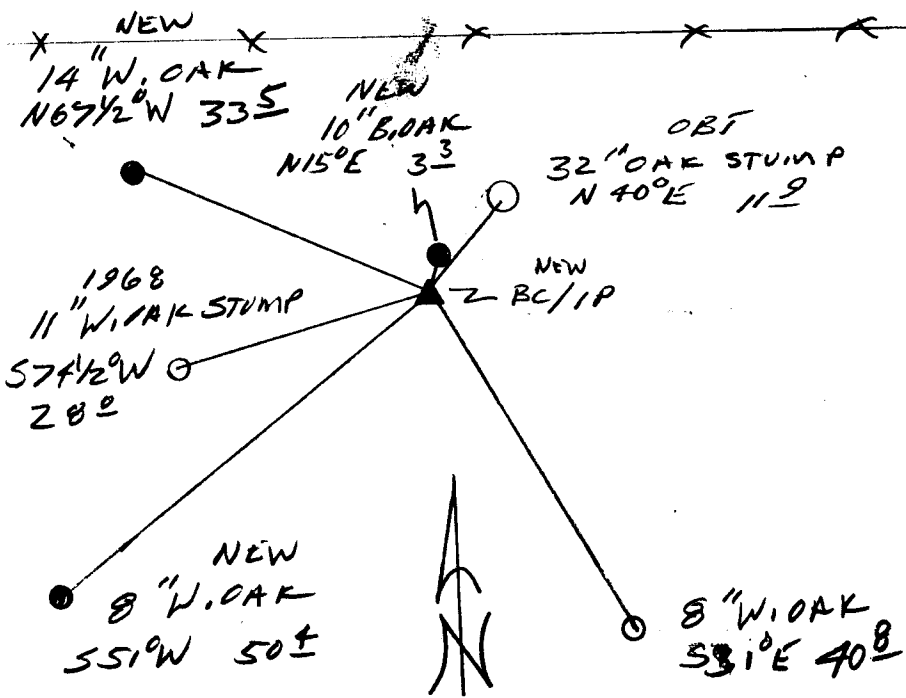 NEW
14" W. OAK
N67½°W 33<u>5</u>
NEW
10" B.OAK
N15°E 3<u>3</u>
OBT
32" OAK STUMP
N 40°E 11<u>9</u>
NEW
BC/IP
1968
11" W.OAK STUMP
S74½°W
28<u>0</u>
NEW
8" W.OAK
S51°W 50<u>4</u>
N
8" W.OAK
S31°E 40<u>8</u>